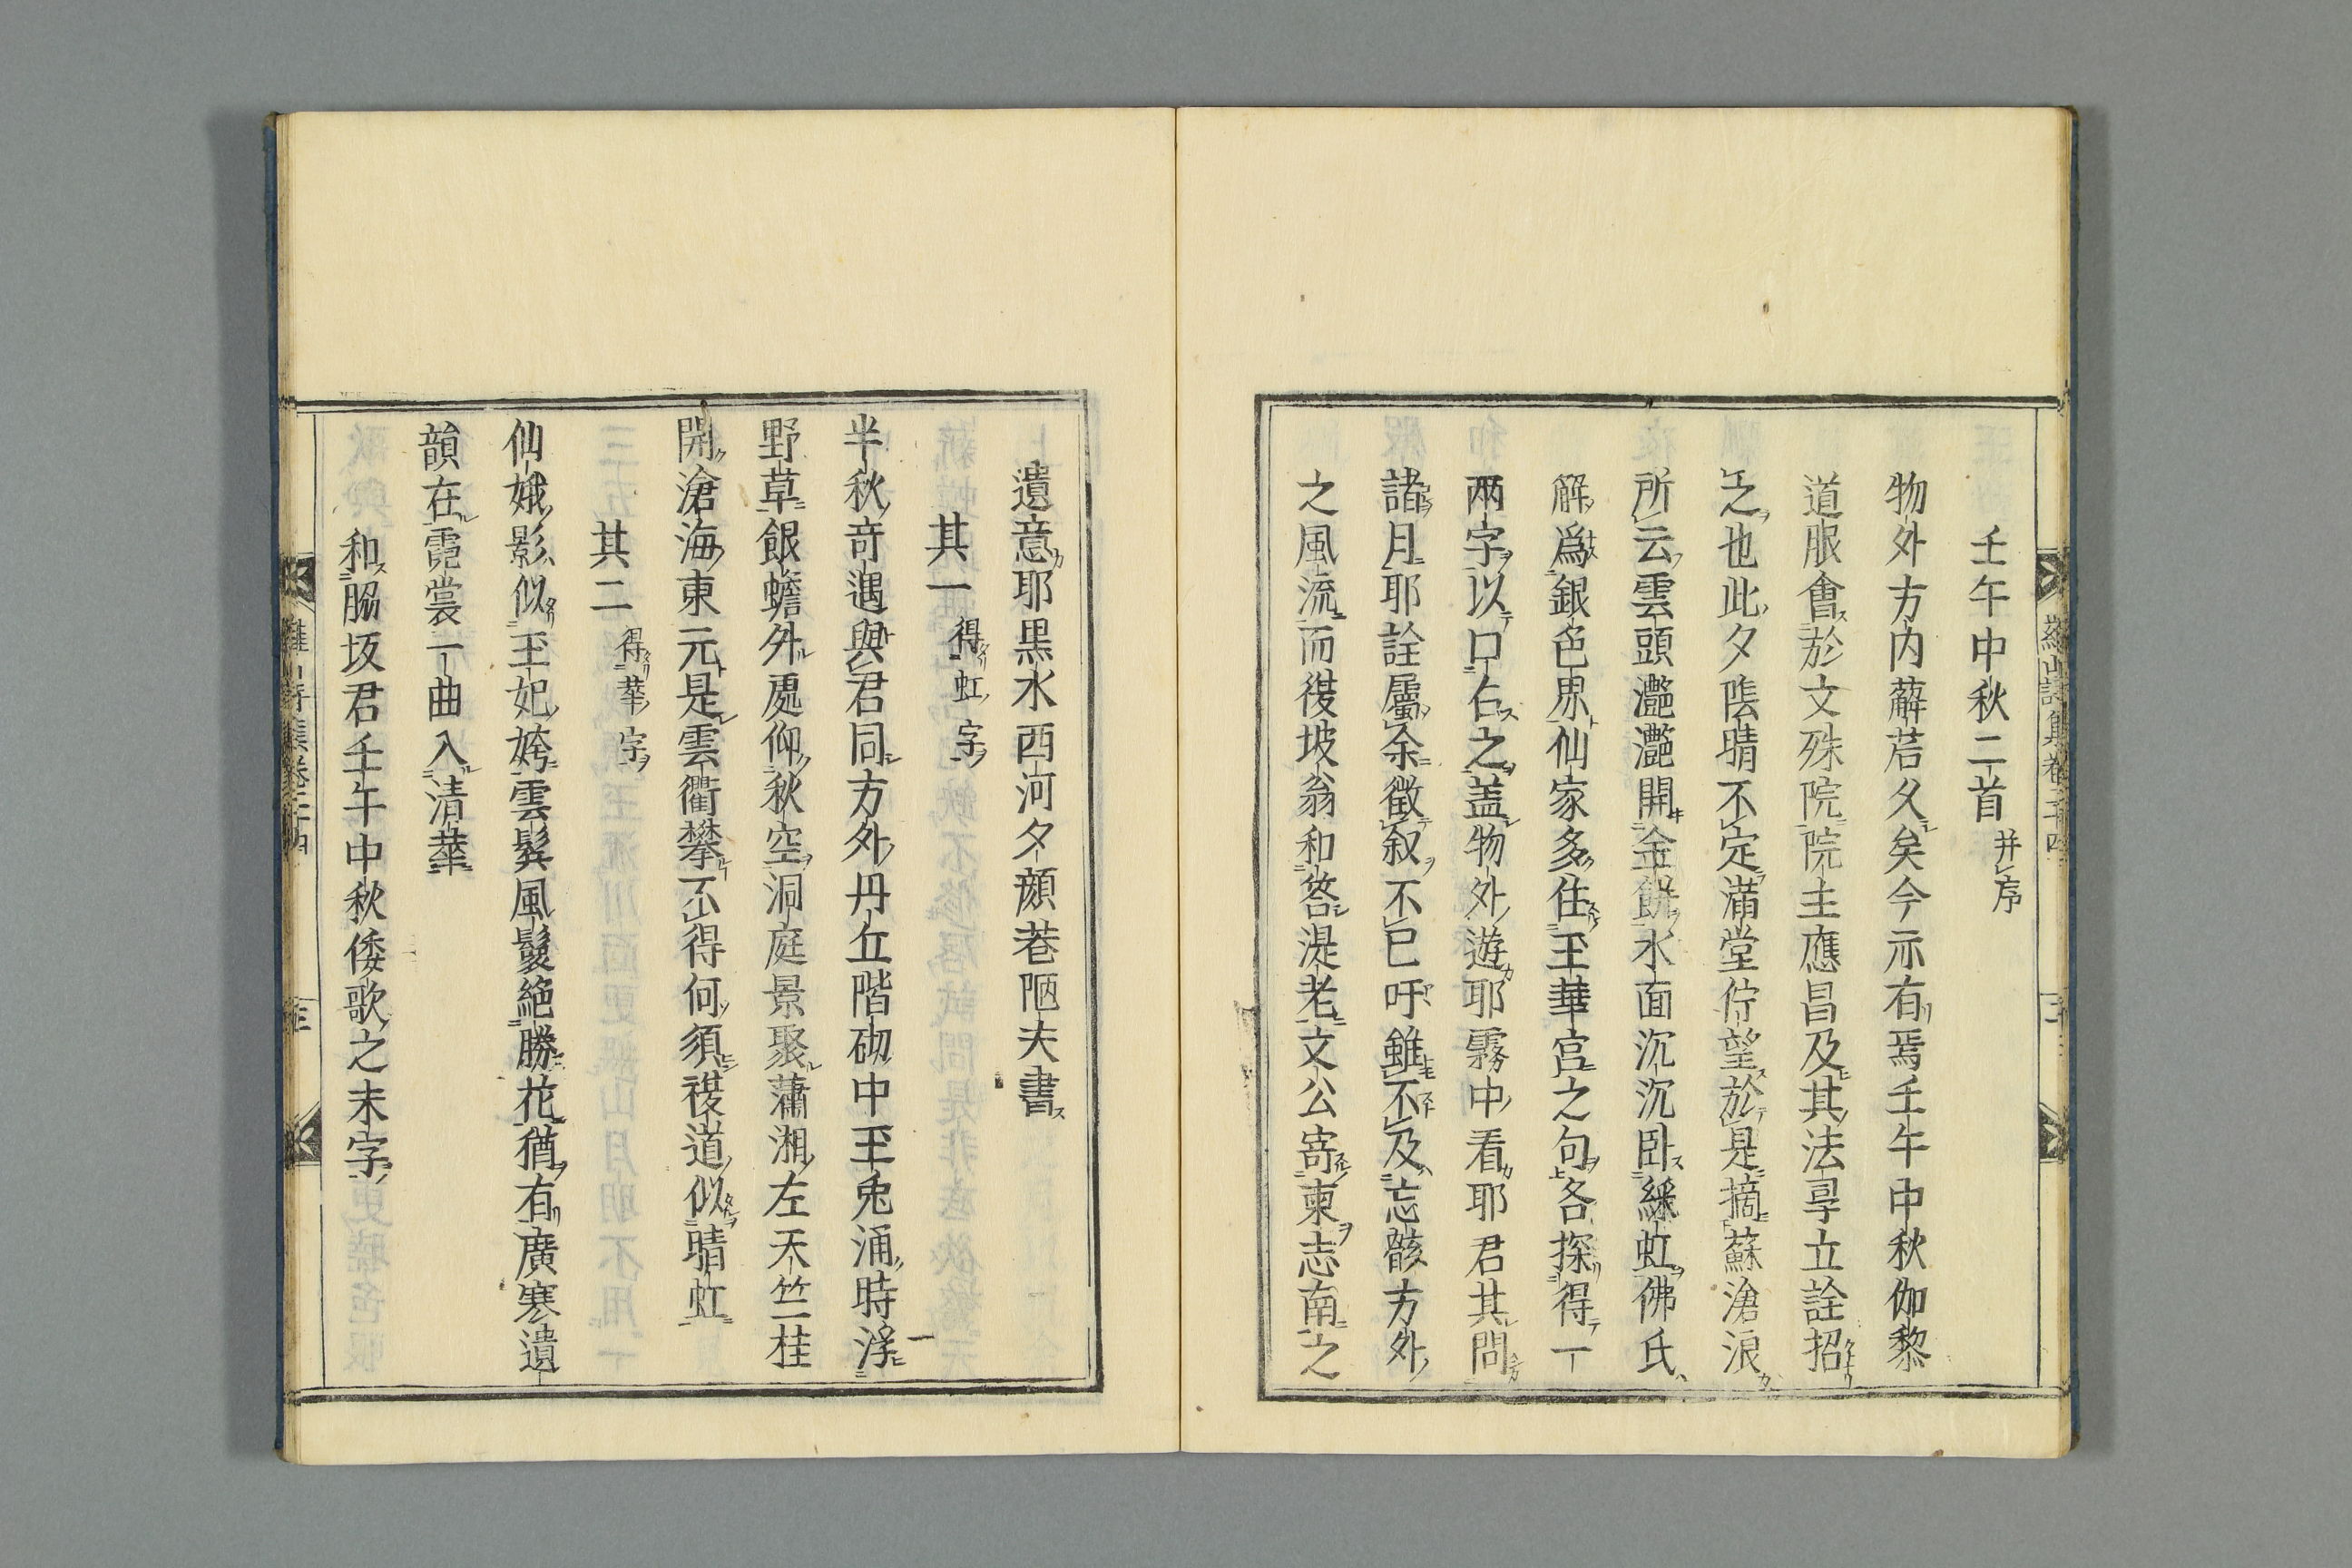 壬午中秋二首并序
物外方内薢茩久矣今亦有焉壬午中秋伽黎
道服會於文殊院院主應昌及其法㝵立詮招
之也此夕陰晴不定滿堂佇望於是摘蘇滄浪
所云雲頭灔灔開金餅水面沉沉卧綵虹佛氏
解爲銀色界仙家多住玉華宫之句各探得一
兩字以口占之盖物外遊耶霧中看耶君其問
諸月耶詮屬余徵叙不已吁雖不及忘骸方外
之風流而復坡翁和答湜老文公寄柬志南之
遺意耶黒水西河夕顔巷陋夫書
其一 得虹字
半秋奇遇與君同方外丹丘階砌中玉兎涌時浮
野草銀蟾外處仰秋空洞庭景聚蕭湘左天竺桂
開滄海東元是雲衢攀不得何須複道似晴虹
其二 得華字
仙娥影似玉妃姱雲鬂風鬟絶勝花猶有廣寒遺
韻在霓裳一曲入清華
和脇坂君壬午中秋倭歌之末字